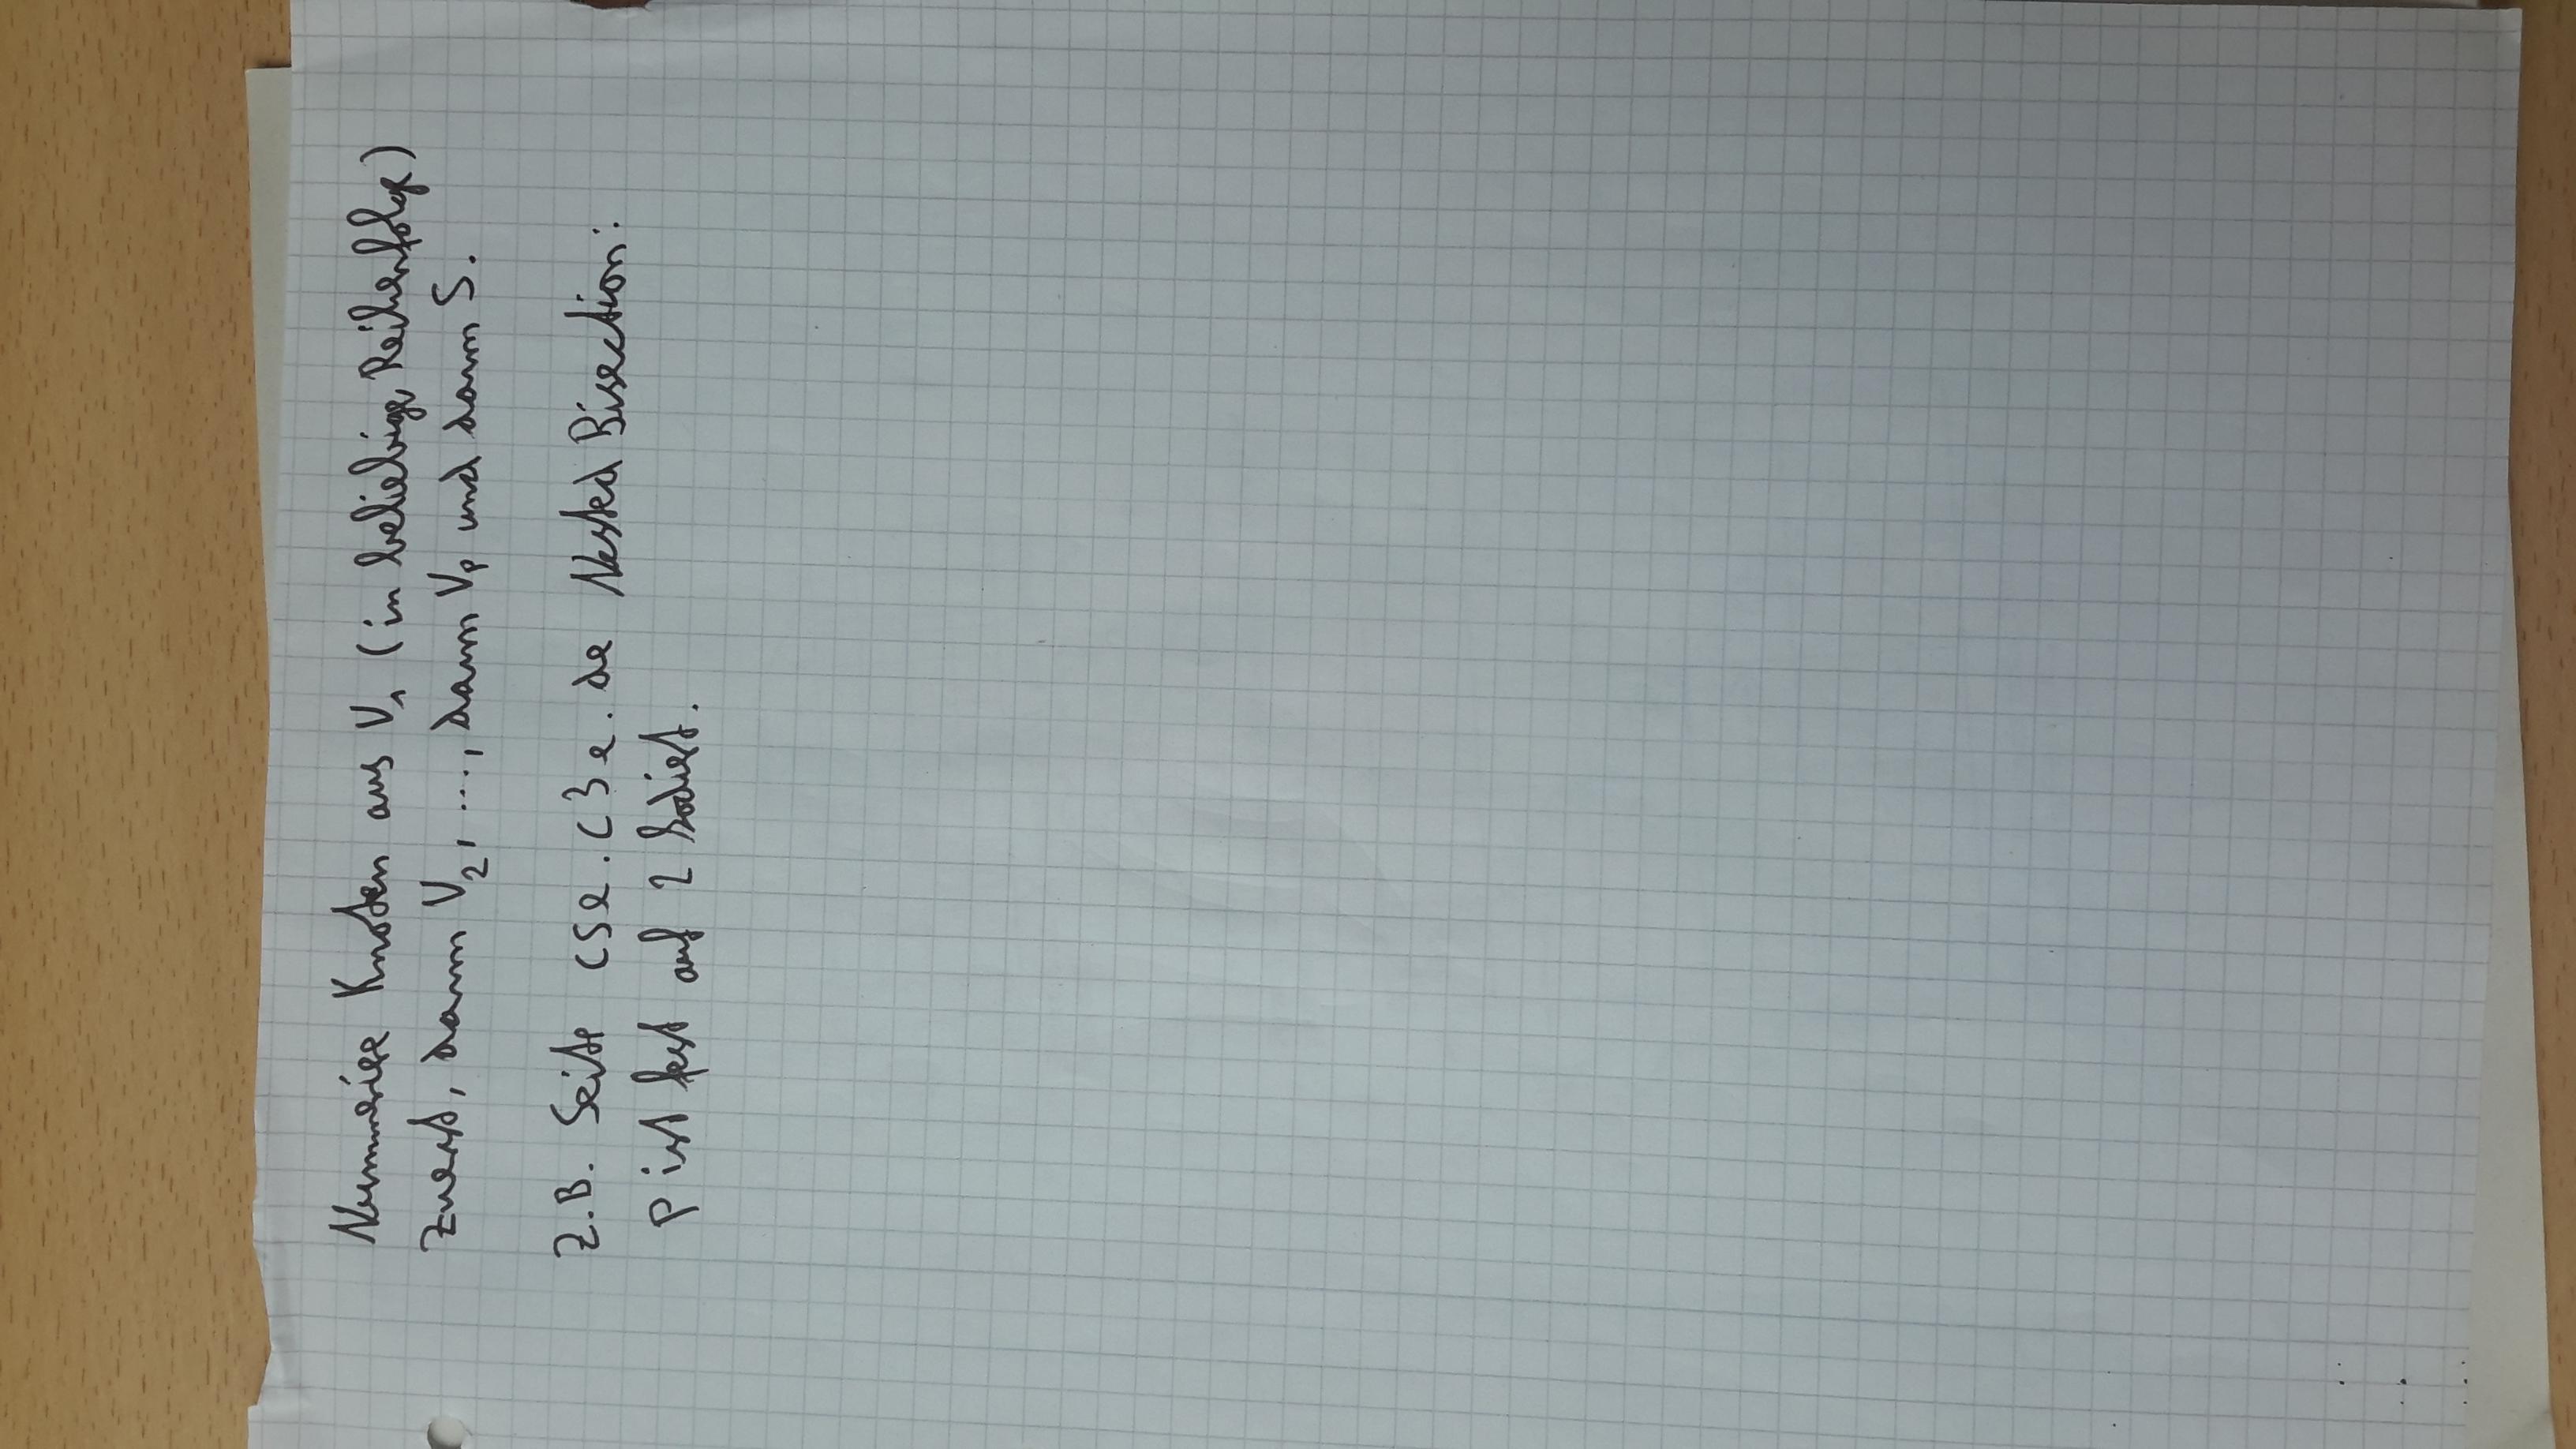 Nummeriere Knoten aus V₁ (in beliebige Reihenfolge)
zuerst, dann V₂, ..., dann Vₚ und dann S.
Z.B. Seite CSe.C3e.de Nested Bisection:
P ist fest auf 2 kodiert.